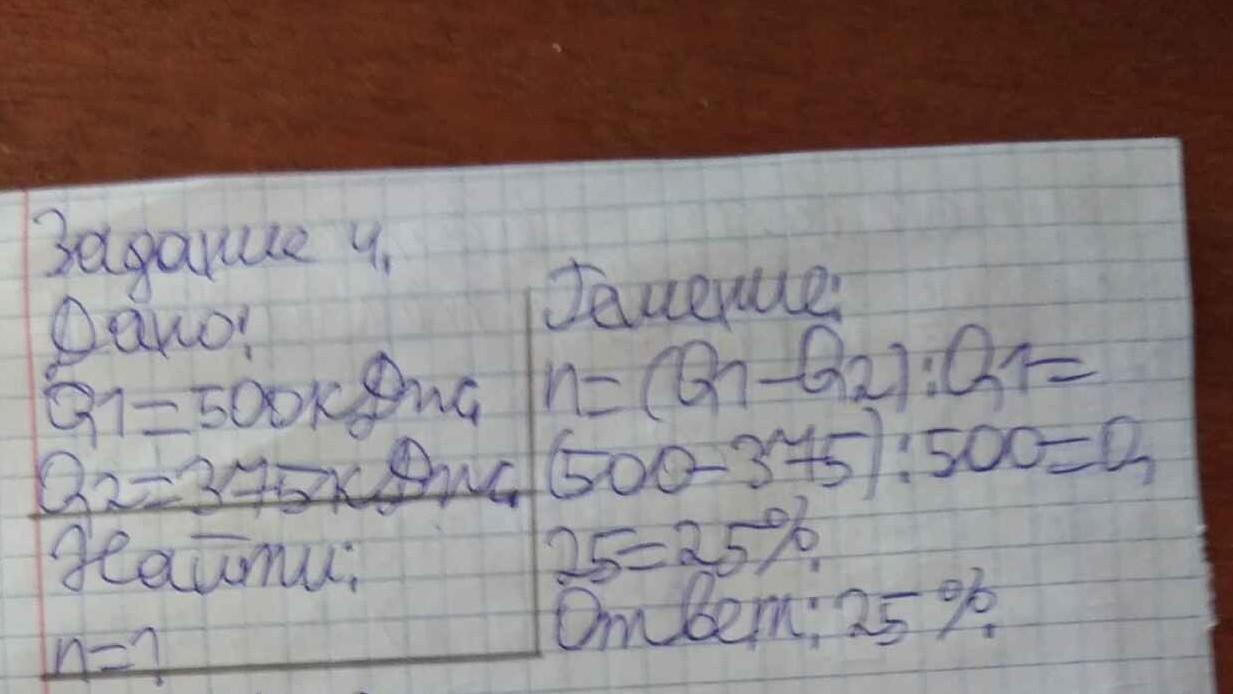 Задание 4.
Дано:
Q1=500кДж
Q2=375кДж
Найти:
n=?
Решение:
n=(Q1-Q2):Q1=
(500-375):500=0,
25=25%.
Ответ: 25%.